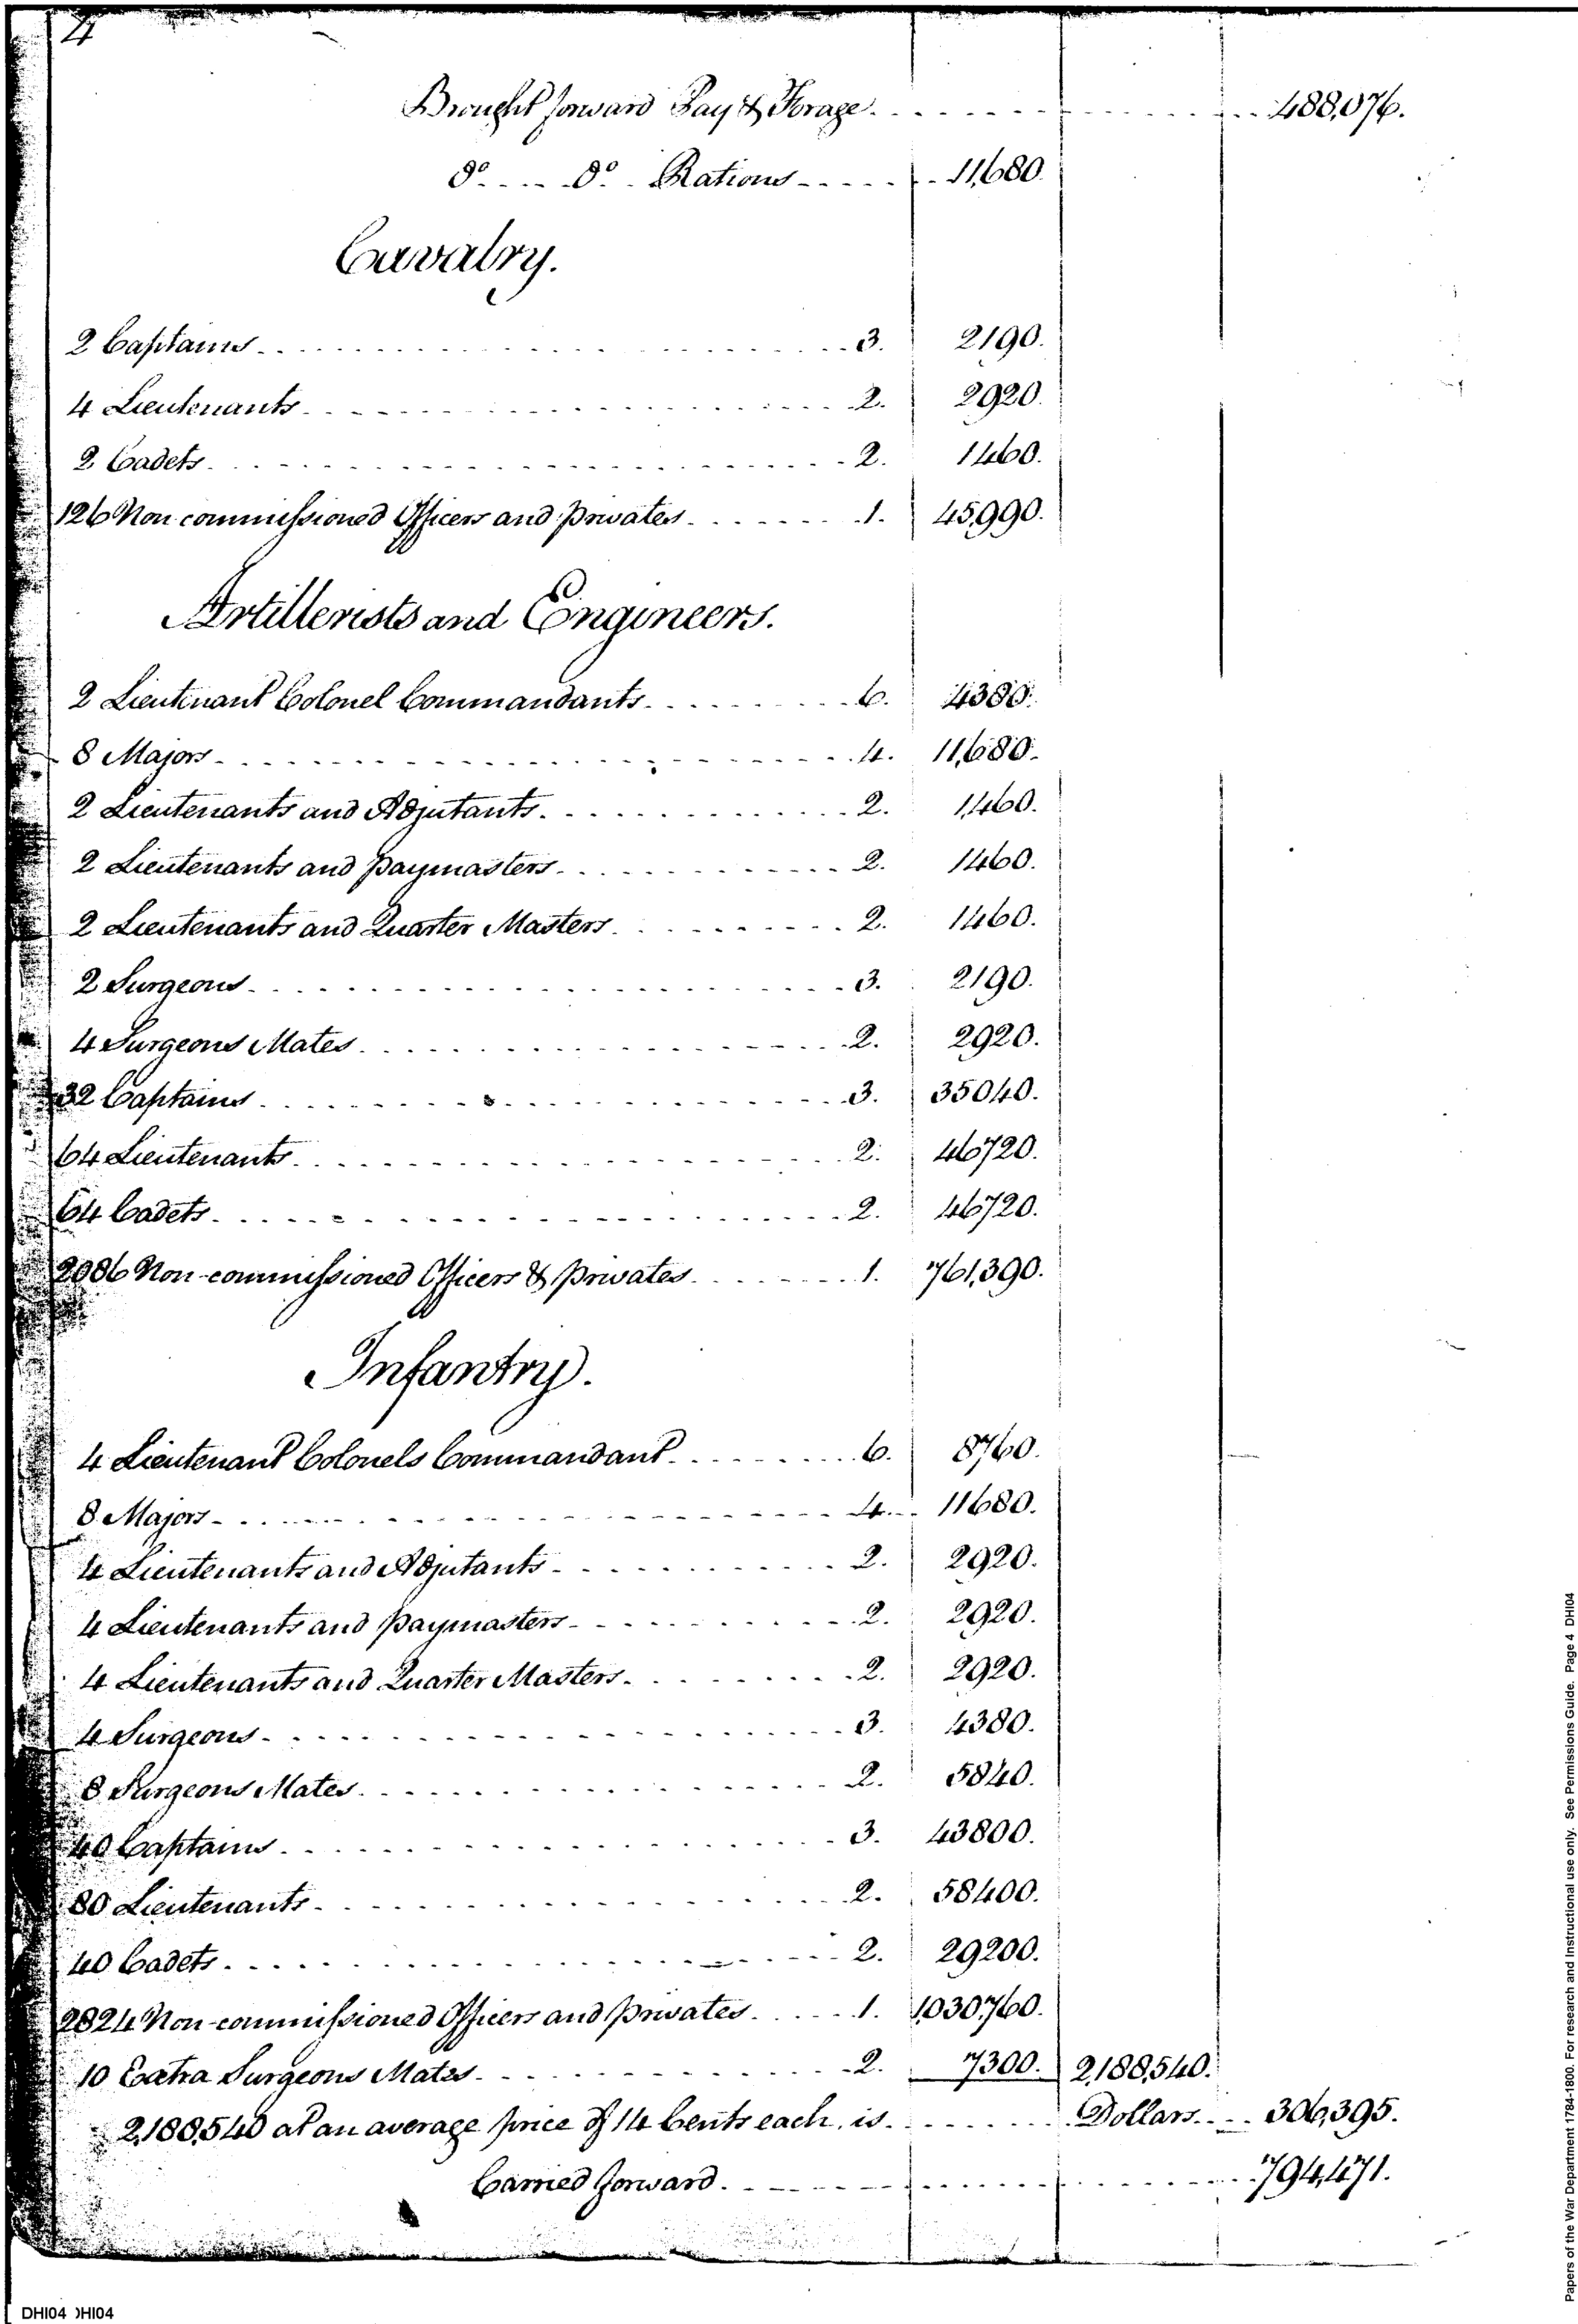 4
Brought forward Pay & Forage 488,076.
do do Rations 11,680.
Cavalry.
2 Captains 3. 2190.
4 Lieutenants 2. 2920.
2 Cadets 2. 1460.
126 Non commissioned Officers and privates 1. 45,990.
Artillerists and Engineers.
2 Lieutenant Colonel Commandants 6. 4380.
8 Majors 4. 11,680.
2 Lieutenants and Adjutants 2. 1,460.
2 Lieutenants and paymasters 2. 1460.
2 Lieutenants and Quarter Masters 2. 1460.
2 Surgeons 3. 2190.
4 Surgeons Mates 2. 2920.
32 Captains 3. 35040.
64 Lieutenants 2. 46720.
64 Cadets 2. 46720.
2086 Non-commissioned Officers & privates 1. 761,390.
Infantry.
4 Lieutenant Colonels Commandant 6. 8760.
8 Majors 4. 11680.
4 Lieutenants and Adjutants 2. 2920.
4 Lieutenants and paymasters 2. 2920.
4 Lieutenants and Quarter Masters 2. 2920.
4 Surgeons 3. 4380.
8 Surgeons Mates 2. 5840.
40 Captains 3. 43800.
80 Lieutenants 2. 58400.
40 Cadets 2. 29200.
2824 Non-commissioned Officers and privates 1. 1,030,760.
10 Extra Surgeons Mates 2. 7300. 2,188,540.
2,188,540 at an average price of 14 Cents each, is Dollars 306,395.
Carried forward 794,471.
Papers of the War Department 1784-1800. For research and instructional use only. See Permissions Guide. Page 4 DHI04
DHI04 DHI04